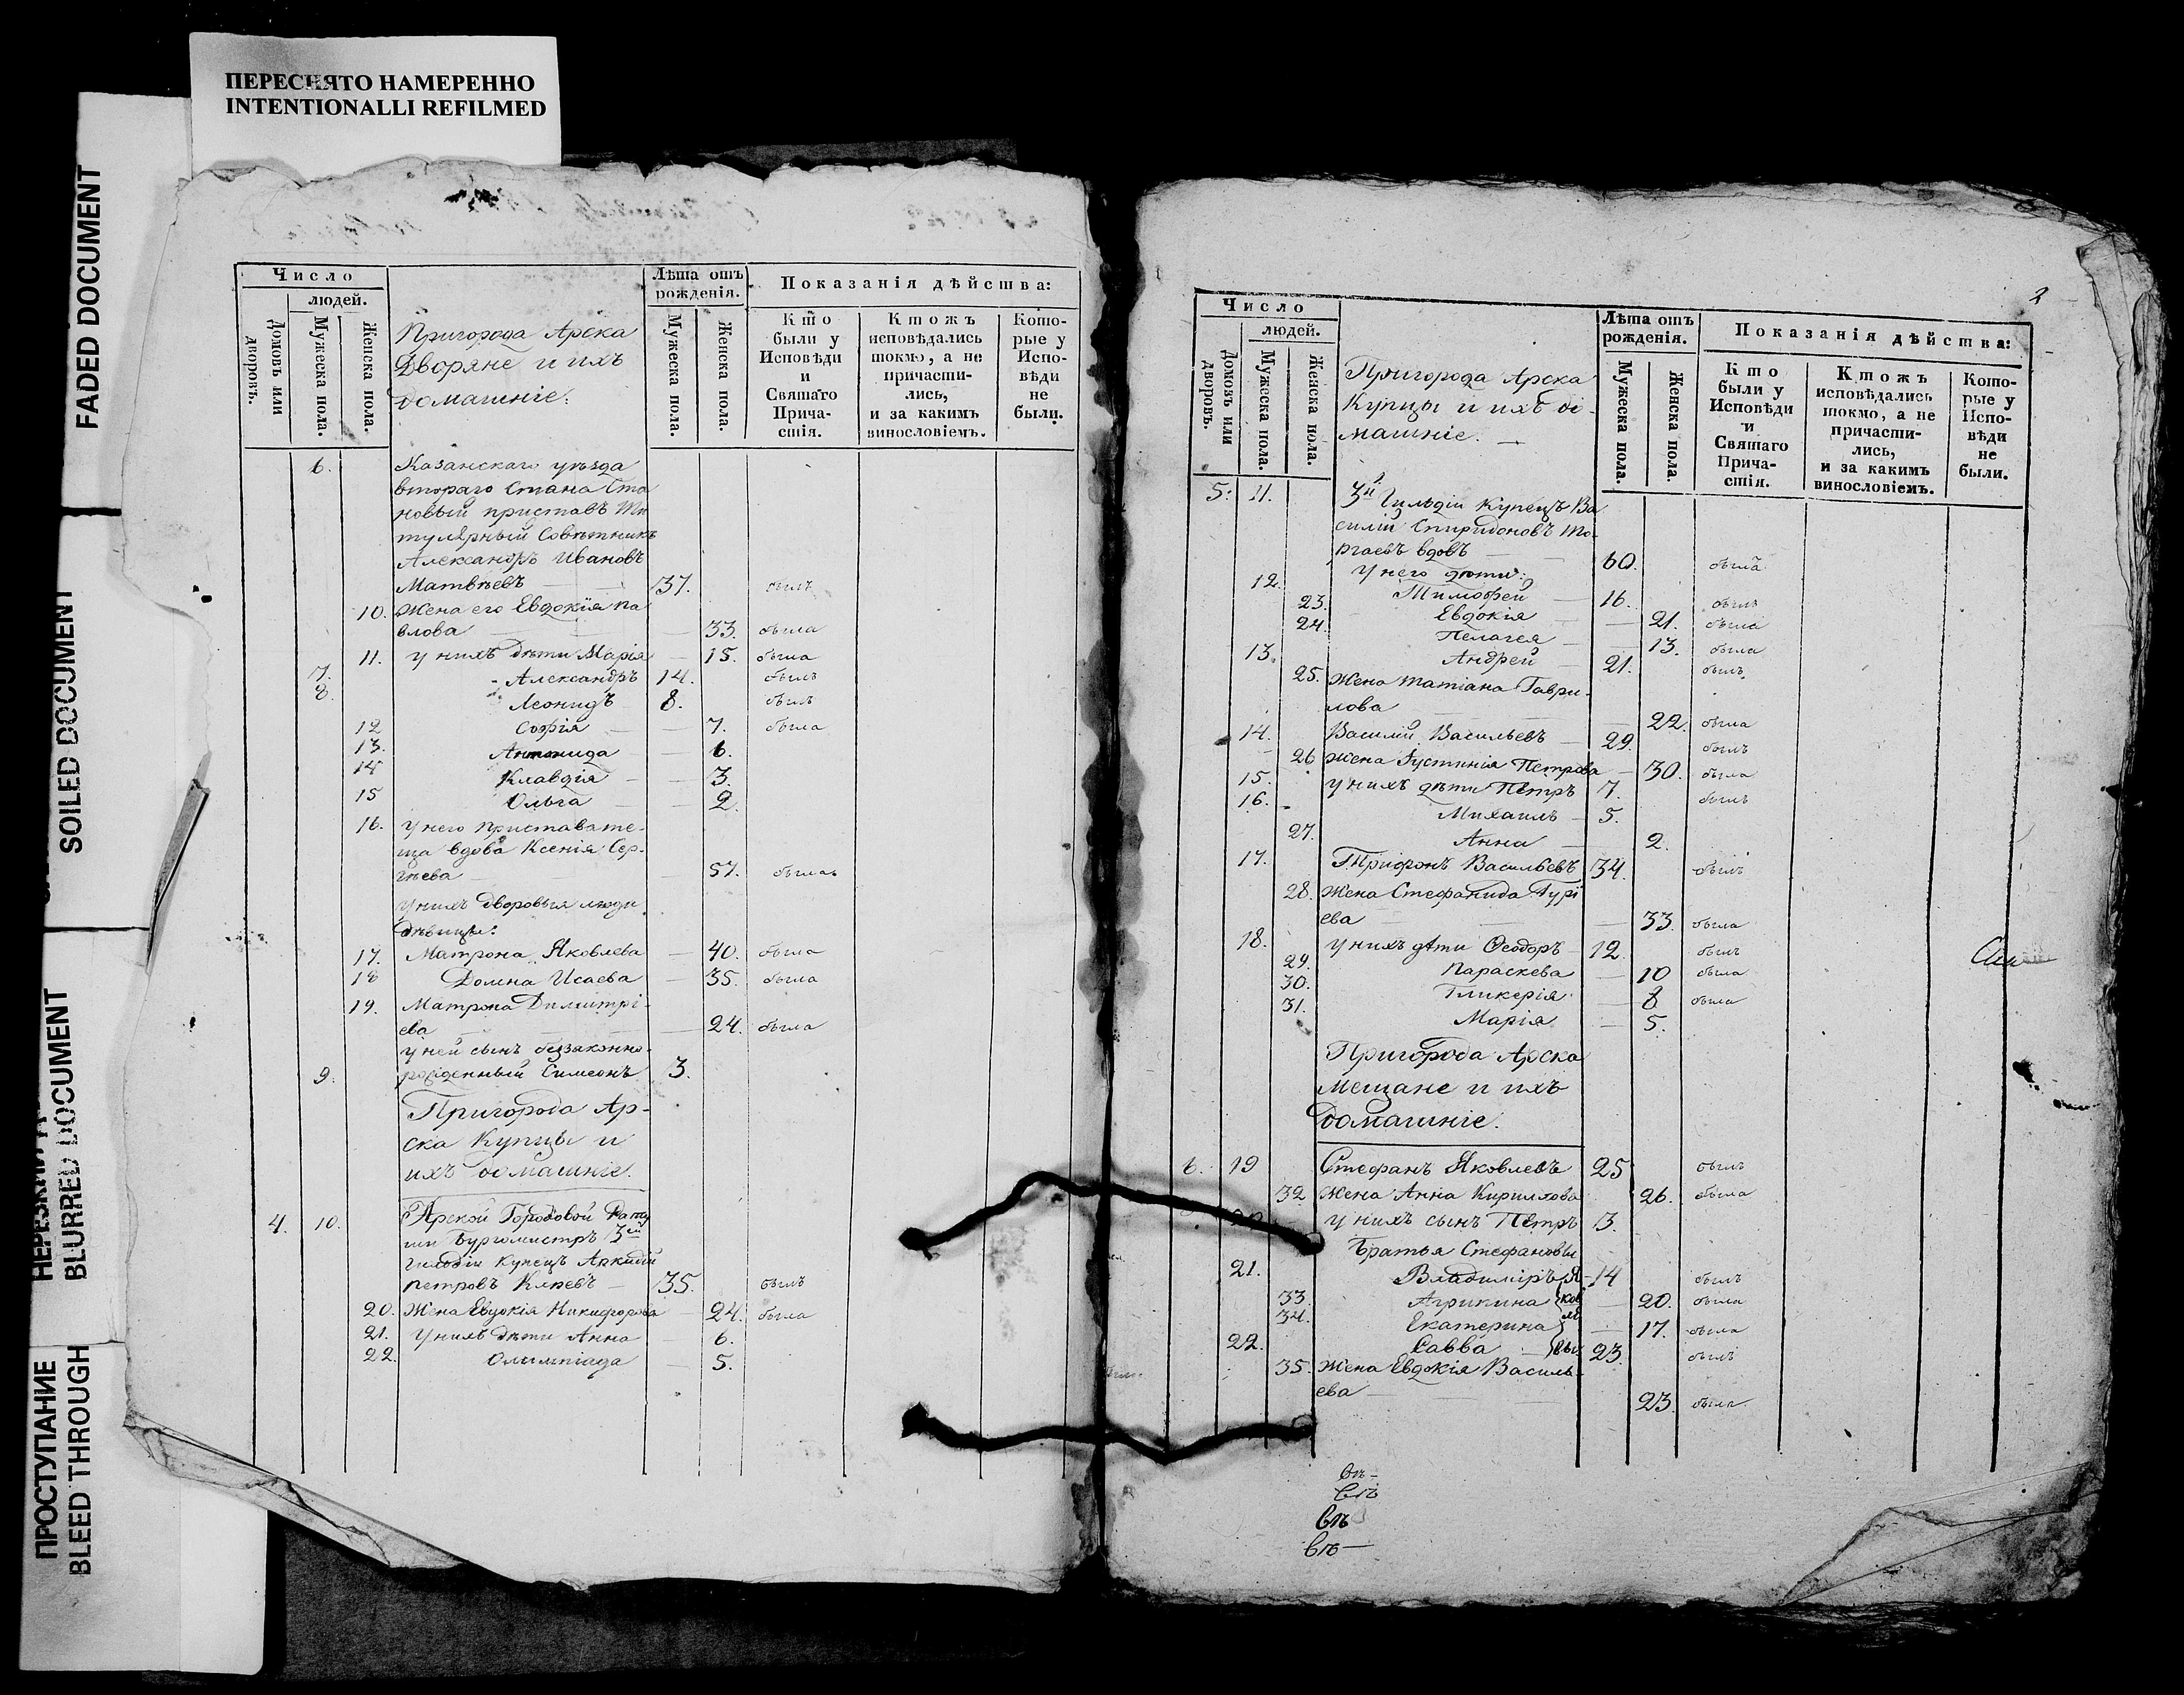 ПЕРЕСНЯТО НАМЕРЕННО
INTENTIONALLI REFILMED
FADED DOCUMENT
SOILED DOCUMENT
BLURRED DOCUMENT
ПРОСТУПАНИЕ
BLEED THROUGH
Число
людей.
Домовъ или дворовъ.
Мужеска пола.
Женска пола.
Пригорода Арска
Дворяне и ихъ
домашніе.
Лѣта отъ рожденія.
Мужеска пола.
Женска пола.
Показанія дѣйства:
Кто были у Исповѣди и Святаго Причастія.
Ктожъ исповѣдались токмо, а не причастились, и за какимъ винословіемъ.
Которые у Исповѣди не были.
6. Казанскаго уѣзда
втораго Стана Ста
новый приставъ Ти
тулярный Совѣтникъ
Александръ Ивановъ
Матвѣевъ 37. былъ
10. Жена его Евдокія Па
влова 33. была
11. у нихъ дѣти Марія 15. была
7. Александръ 14. былъ
8. Леонидъ 8. былъ
12 Софія 7. была
13. Антонида 6.
14 Клавдія 3.
15 Ольга 2.
16. у него пристава те-
ща вдова Ксенія Сер-
гѣева 57. была
у нихъ дворовыя люди
дѣвицы:
17. Матрона Яковлева 40. была
18 Домна Исаева 35. была
19. Матрона Димитрі-
ева 24. была
у ней сынъ беззаконно-
9. рожденный Симеонъ 3.
Пригорода Ар-
ска Купцы и
ихъ домашніе.
4. 10. Арской Городовой Рату
ши Бургомистръ 3ей
гильдіи купецъ Аркадій
Петровъ 35. былъ
20. Жена Евдокія Никифорова 24. была
21. у нихъ дѣти Анна 6.
22. Олимпіада 5.
2
Число
людей.
Домовъ или дворовъ.
Мужеска пола.
Женска пола.
Пригорода Арска
Купцы и ихъ до-
машніе.
Лѣта отъ рожденія.
Мужеска пола.
Женска пола.
Показанія дѣйства:
Кто были у Исповѣди и Святаго Причастія.
Ктожъ исповѣдались токмо, а не причастились, и за какимъ винословіемъ.
Которые у Исповѣди не были.
5. 11. 3й Гильдіи купецъ Ва
силій Спиридоновъ
вдовъ 60. былъ
у него дѣти:
12. Тимофей 16. былъ
23. Евдокія 21. была
24. Пелагея 13. была
13. Андрей 21. былъ
25. Жена Татіана Гаври-
лова 22. была
14. Василій Васильевъ 29. былъ
26 Жена Іустинія Петрова 30. была
15. у нихъ дѣти Петръ 7. былъ
16. Михаилъ 5.
27. Анна 2.
17. Трифонъ Васильевъ 34. былъ
28. Жена Стефанида Гурі
ева 33. была
18. у нихъ дѣти Ѳеодоръ 12. былъ
29. Параскева 10 была
30. Гликерія 8 была
31. Марія 5.
Пригорода Арска
Мещане и ихъ
домашніе.
6. 19 Стефанъ Яковлевъ 25 былъ
32 Жена Анна Кирилова 26. была
у нихъ сынъ Петръ 3.
Братья Стефановы
21. Владиміръ Я- 14 былъ
33. Агрипина ков 20. была
34. Екатерина ле 17. была
22. Савва вы 23. былъ
35. Жена Евдокія Василь-
ева 23. была